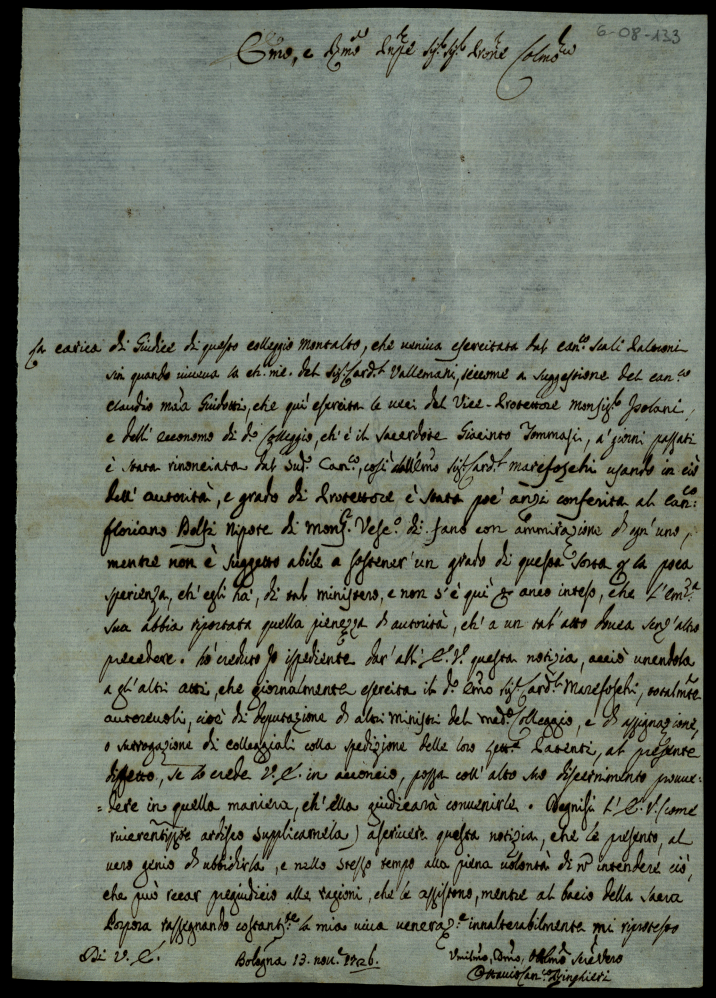 6-08-133
Emo, e Rmo Sig.r Sig.r Prone Colmo
La carica di Giudice di questo Colleggio Montalto, che veniva esercitata dal Can.co Scali
sin quando viveva la ch: me: del Sig.r Card.l Vallemani, siccome a suggestione del Can.co
Claudio Ma'a Guidotti, che qui esercita le veci del Vice-Protettore Monsig.r Isolani,
e dell' Economo di d.o Colleggio, ch'è il Sacerdote Giacinto Tommasi, a' giorni passati
è stata rinonciata dal sud.o Can.co, così dall'Emo Sig.r Card.l Marefoschi usando in ciò
dell' autorità, e grado di Protettore è stata poc' anzi conferita al Can.co
Floriano Belfi Nipote di Mons.r Vesc.o di Fano con ammirazione d'ogn' uno,
mentre non è suggetto abile a sostener' un grado di questa sorta p la poca
sperienza, ch' egli hà, di tal ministero, e non s'è quì p anco inteso, che l'Em.za
sua abbia riportata quella pienezza d'autorità, ch' a un tal' atto dovea senz'altro
precedere. Hò creduto Io ispediente dar' all' E. V. questa notizia, acciò unendola
a gl'altri atti, che giornalmente esercita il d.o Emo Sig.r Card.l Marefoschi, totalmte
autorevoli, cioè di deputazione d'altri Ministri del med.o Colleggio, e d'assignazione,
o surrogazione di Colleggiali colla spedizione delle loro Lett.e Patenti, al presente
effetto, se lo crede V. E. in acconcio, possa coll' alto suo discernimento provve-
=dere in quella maniera, ch' ella giudicarà convenirle. Degnisi l' E. V. (come
riverentemte ardisco supplicarnela) ascrivere questa notizia, che le presento, al
vero genio d'ubbidirla, e nello stesso tempo alla piena volontà di n.o intendere ciò,
che può recar pregiudicio alle ragioni, che le assistono, mentre al bacio della Sacra
Porpora rassegnando costantte la mia viva veneraz.e innalterabilmente mi riprotesto
Di V. E. Bologna 13. nov.e 1726. Umilmo, Dmo, Obblmo Serv Vero
Ottavio Can.co Ringhieri